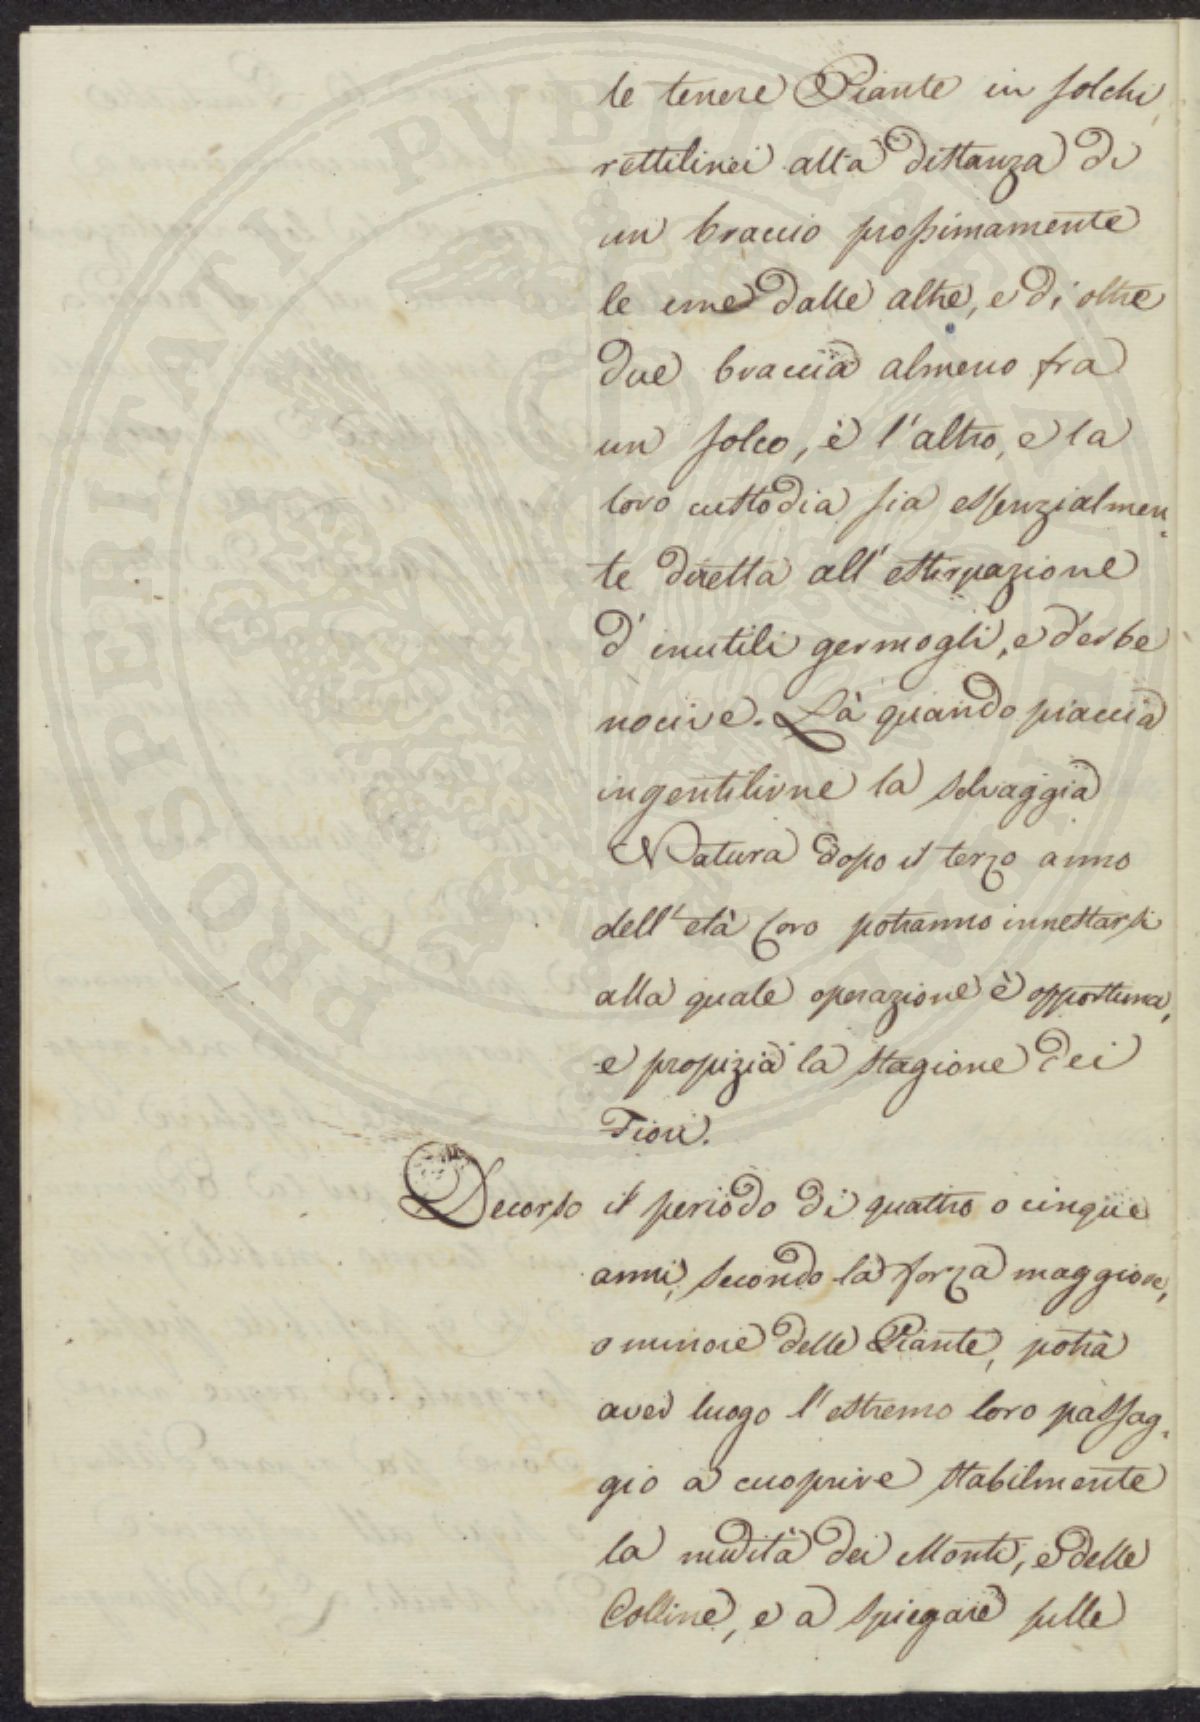 le tenere Piante in solchi
rettilinei alla distanza di
un braccio prossimamente
le une dalle altre, e di oltre
due braccia almeno fra
un solco, è l'altro, e la
loro custodia sia essenzialmen-
te diretta all'estirpazione
d'inutili germogli, e d'erbe
nocive. Là quando piaccia
ingentilirne la selvaggia
Natura dopo il terzo anno
dell'età loro potranno innestarsi
alla quale operazione è opportuna,
e propizia la stagione dei
Fiori.
Decorso il periodo di quattro o cinque
anni, secondo la forza maggiore,
o minore delle Piante, potrà
aver luogo l'estremo loro passag-
gio a cuoprire stabilmente
la nudità dei Monti, e delle
Colline, e a spiegare sulle
PROSPERITATI PVBLICAE AVGENDAE